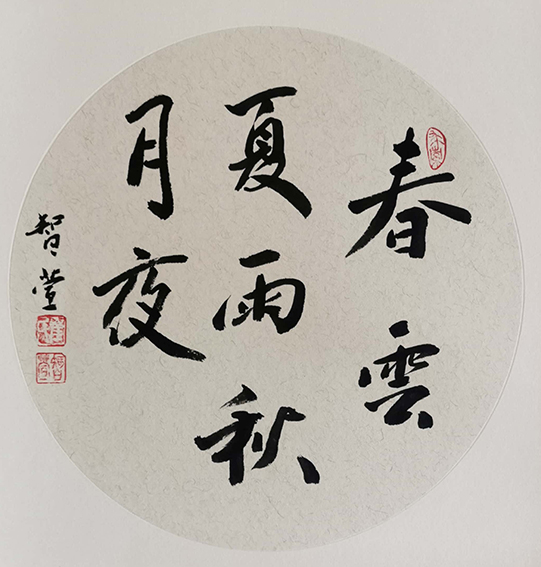 春雲
夏雨秋
月夜
智萱